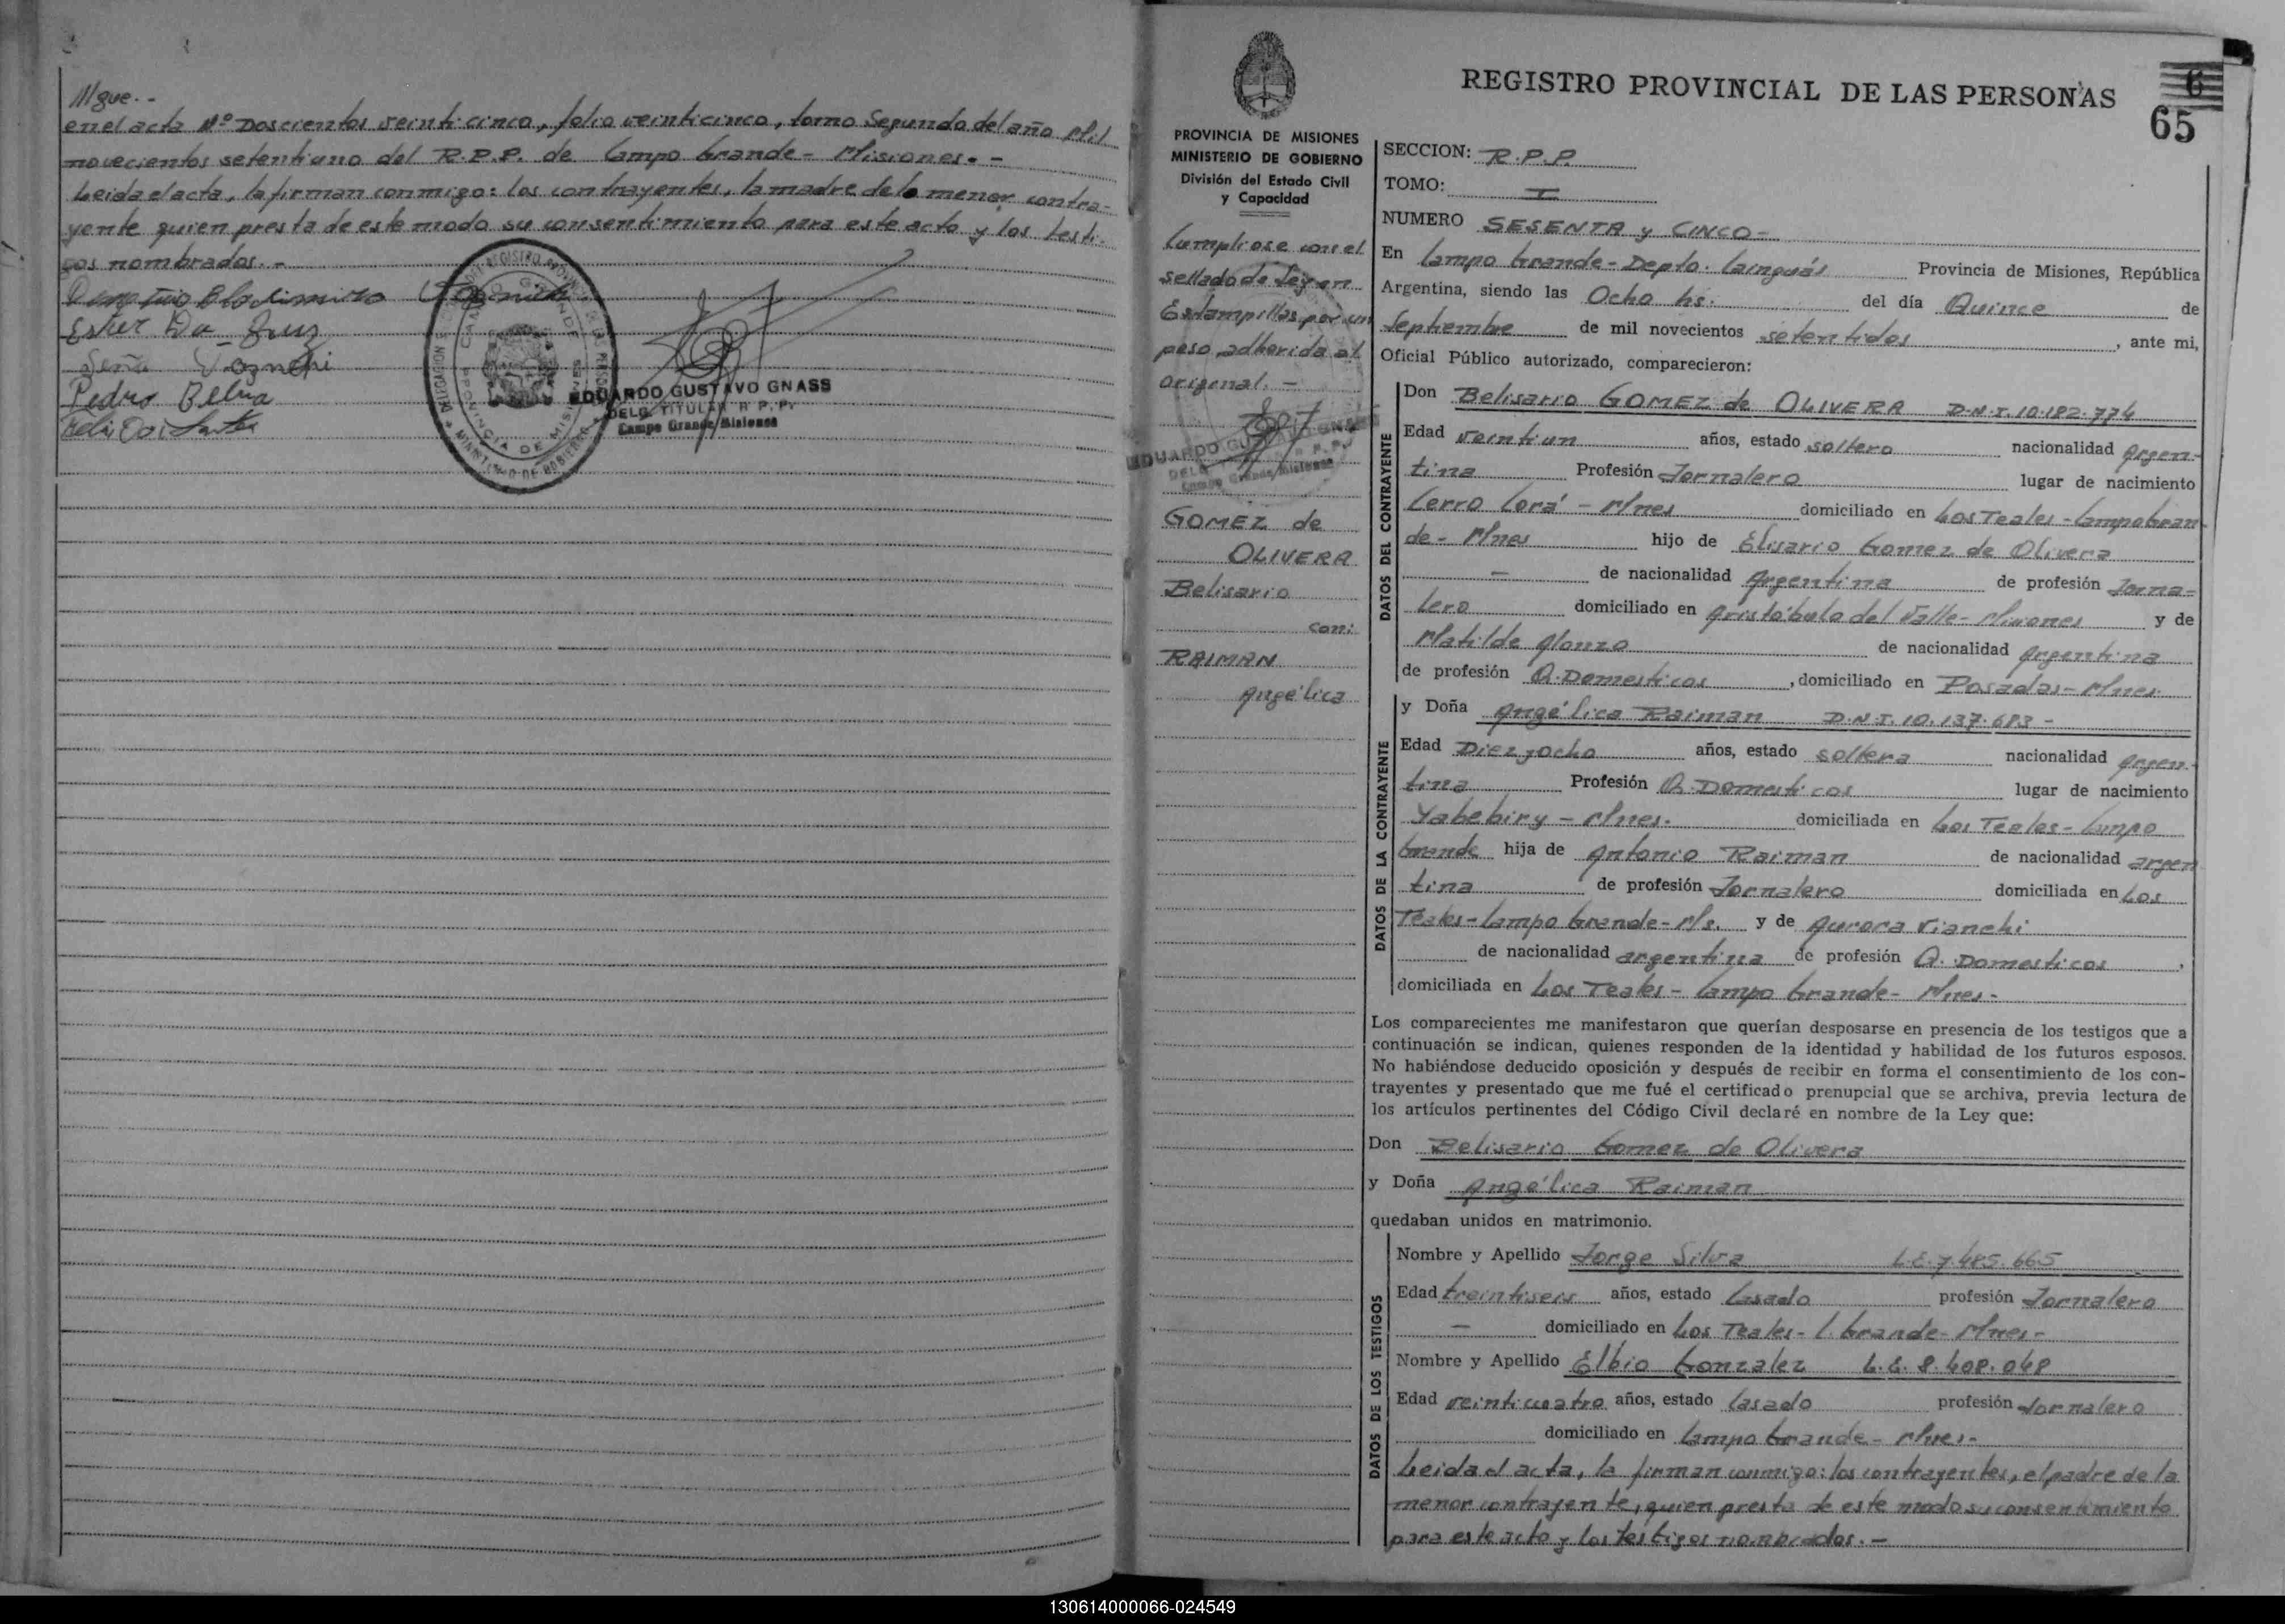 ///gue.-
en el acta Nº Doscientos veinticinco, folio veinticinco, tomo Segundo del año Mil
novecientos setentiuno del R.P.P. de Campo Grande - Misiones. -
Leida el acta, la firman conmigo: los contrayentes, la madre de la menor contra-
yente quien presta de este modo su consentimiento para este acto y los testi-
gos nombrados. -
Ester Da Cruz
Pedro Belna
EDUARDO GUSTAVO GNASS
DELG. TITULAR R.P.P.
Campo Grande Misiones
REGISTRO PROVINCIAL DE LAS PERSONAS
6
65
PROVINCIA DE MISIONES
MINISTERIO DE GOBIERNO
División del Estado Civil
y Capacidad
Cumpliose con el
sellado de Ley en
Estampillas por un
peso adherida al
original. -
EDUARDO GUSTAVO GNASS
DELG. TITULAR R.P.P.
Campo Grande Misiones
GOMEZ de
OLIVERA
Belisario
con:
RAIMAN
Angélica
SECCION: R.P.P.
TOMO: I
NUMERO SESENTA y CINCO-
En Campo Grande - Depto. Cainguás Provincia de Misiones, República
Argentina, siendo las Ocho hs. del día Quince de
Septiembre de mil novecientos setentidos, ante mi,
Oficial Público autorizado, comparecieron:
DATOS DEL CONTRAYENTE
Don Belisario GOMEZ de OLIVERA D.N.I. 10.182.774
Edad veintiun años, estado soltero nacionalidad Argen-
tina Profesión Jornalero lugar de nacimiento
Cerro Corá - Mnes domiciliado en Los Teales - Campo Gran
de - Mnes hijo de Elisario Gomez de Olivera
- de nacionalidad Argentina de profesión Jorna-
lero domiciliado en Aristóbulo del Valle - Misiones y de
Matilde Alonzo de nacionalidad Argentina
de profesión Q. Domesticos, domiciliado en Posadas - Mnes.
DATOS DE LA CONTRAYENTE
y Doña Angélica Raiman D.N.I. 10.137.683 -
Edad Diezyocho años, estado soltera nacionalidad Argen-
tina Profesión Q. Domesticos lugar de nacimiento
Yabebiry - Mnes. domiciliada en Los Teales - Campo
Grande hija de Antonio Raiman de nacionalidad argen
tina de profesión Jornalero domiciliada en Los
Teales - Campo Grande - M/s. y de Aurora Vianchi
de nacionalidad argentina de profesión Q. Domesticos,
domiciliada en Los Teales - Campo Grande - Mnes -
Los comparecientes me manifestaron que querían desposarse en presencia de los testigos que a
continuación se indican, quienes responden de la identidad y habilidad de los futuros esposos.
No habiéndose deducido oposición y después de recibir en forma el consentimiento de los con-
trayentes y presentado que me fué el certificado prenupcial que se archiva, previa lectura de
los artículos pertinentes del Código Civil declaré en nombre de la Ley que:
Don Belisario Gomez de Olivera
y Doña Angélica Raiman
quedaban unidos en matrimonio.
DATOS DE LOS TESTIGOS
Nombre y Apellido Jorge Silva L.E. 7.485.665
Edad treintiseis años, estado Casado profesión Jornalero
- domiciliado en Los Teales - C. Grande - Mnes -
Nombre y Apellido Elbio Gonzalez L.E. 8.408.048
Edad veinticuatro años, estado Casado profesión Jornalero
domiciliado en Campo Grande - Mnes -
Leida el acta, la firman conmigo: los contrayentes, el padre de la
menor contrayente, quien presta de este modo su consentimiento
para este acto y los testigos nombrados. -
130614000066-024549